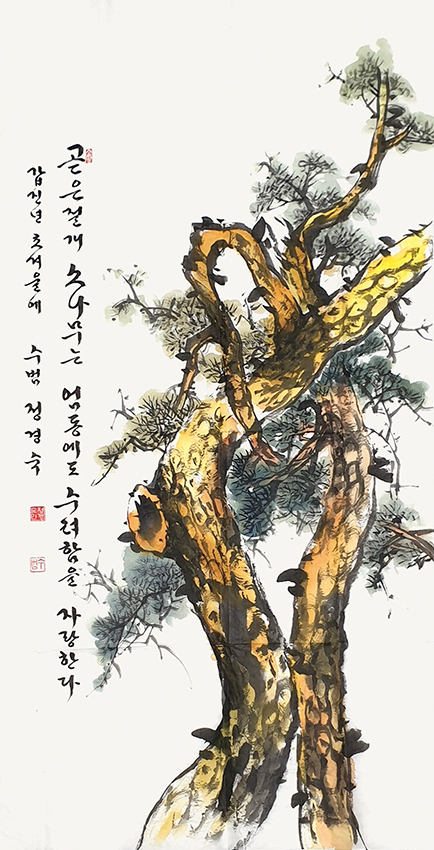 곧은절개 소나무는 엄동에도 수려함을 자랑한다
갑진년 초겨울에 수범 정경숙